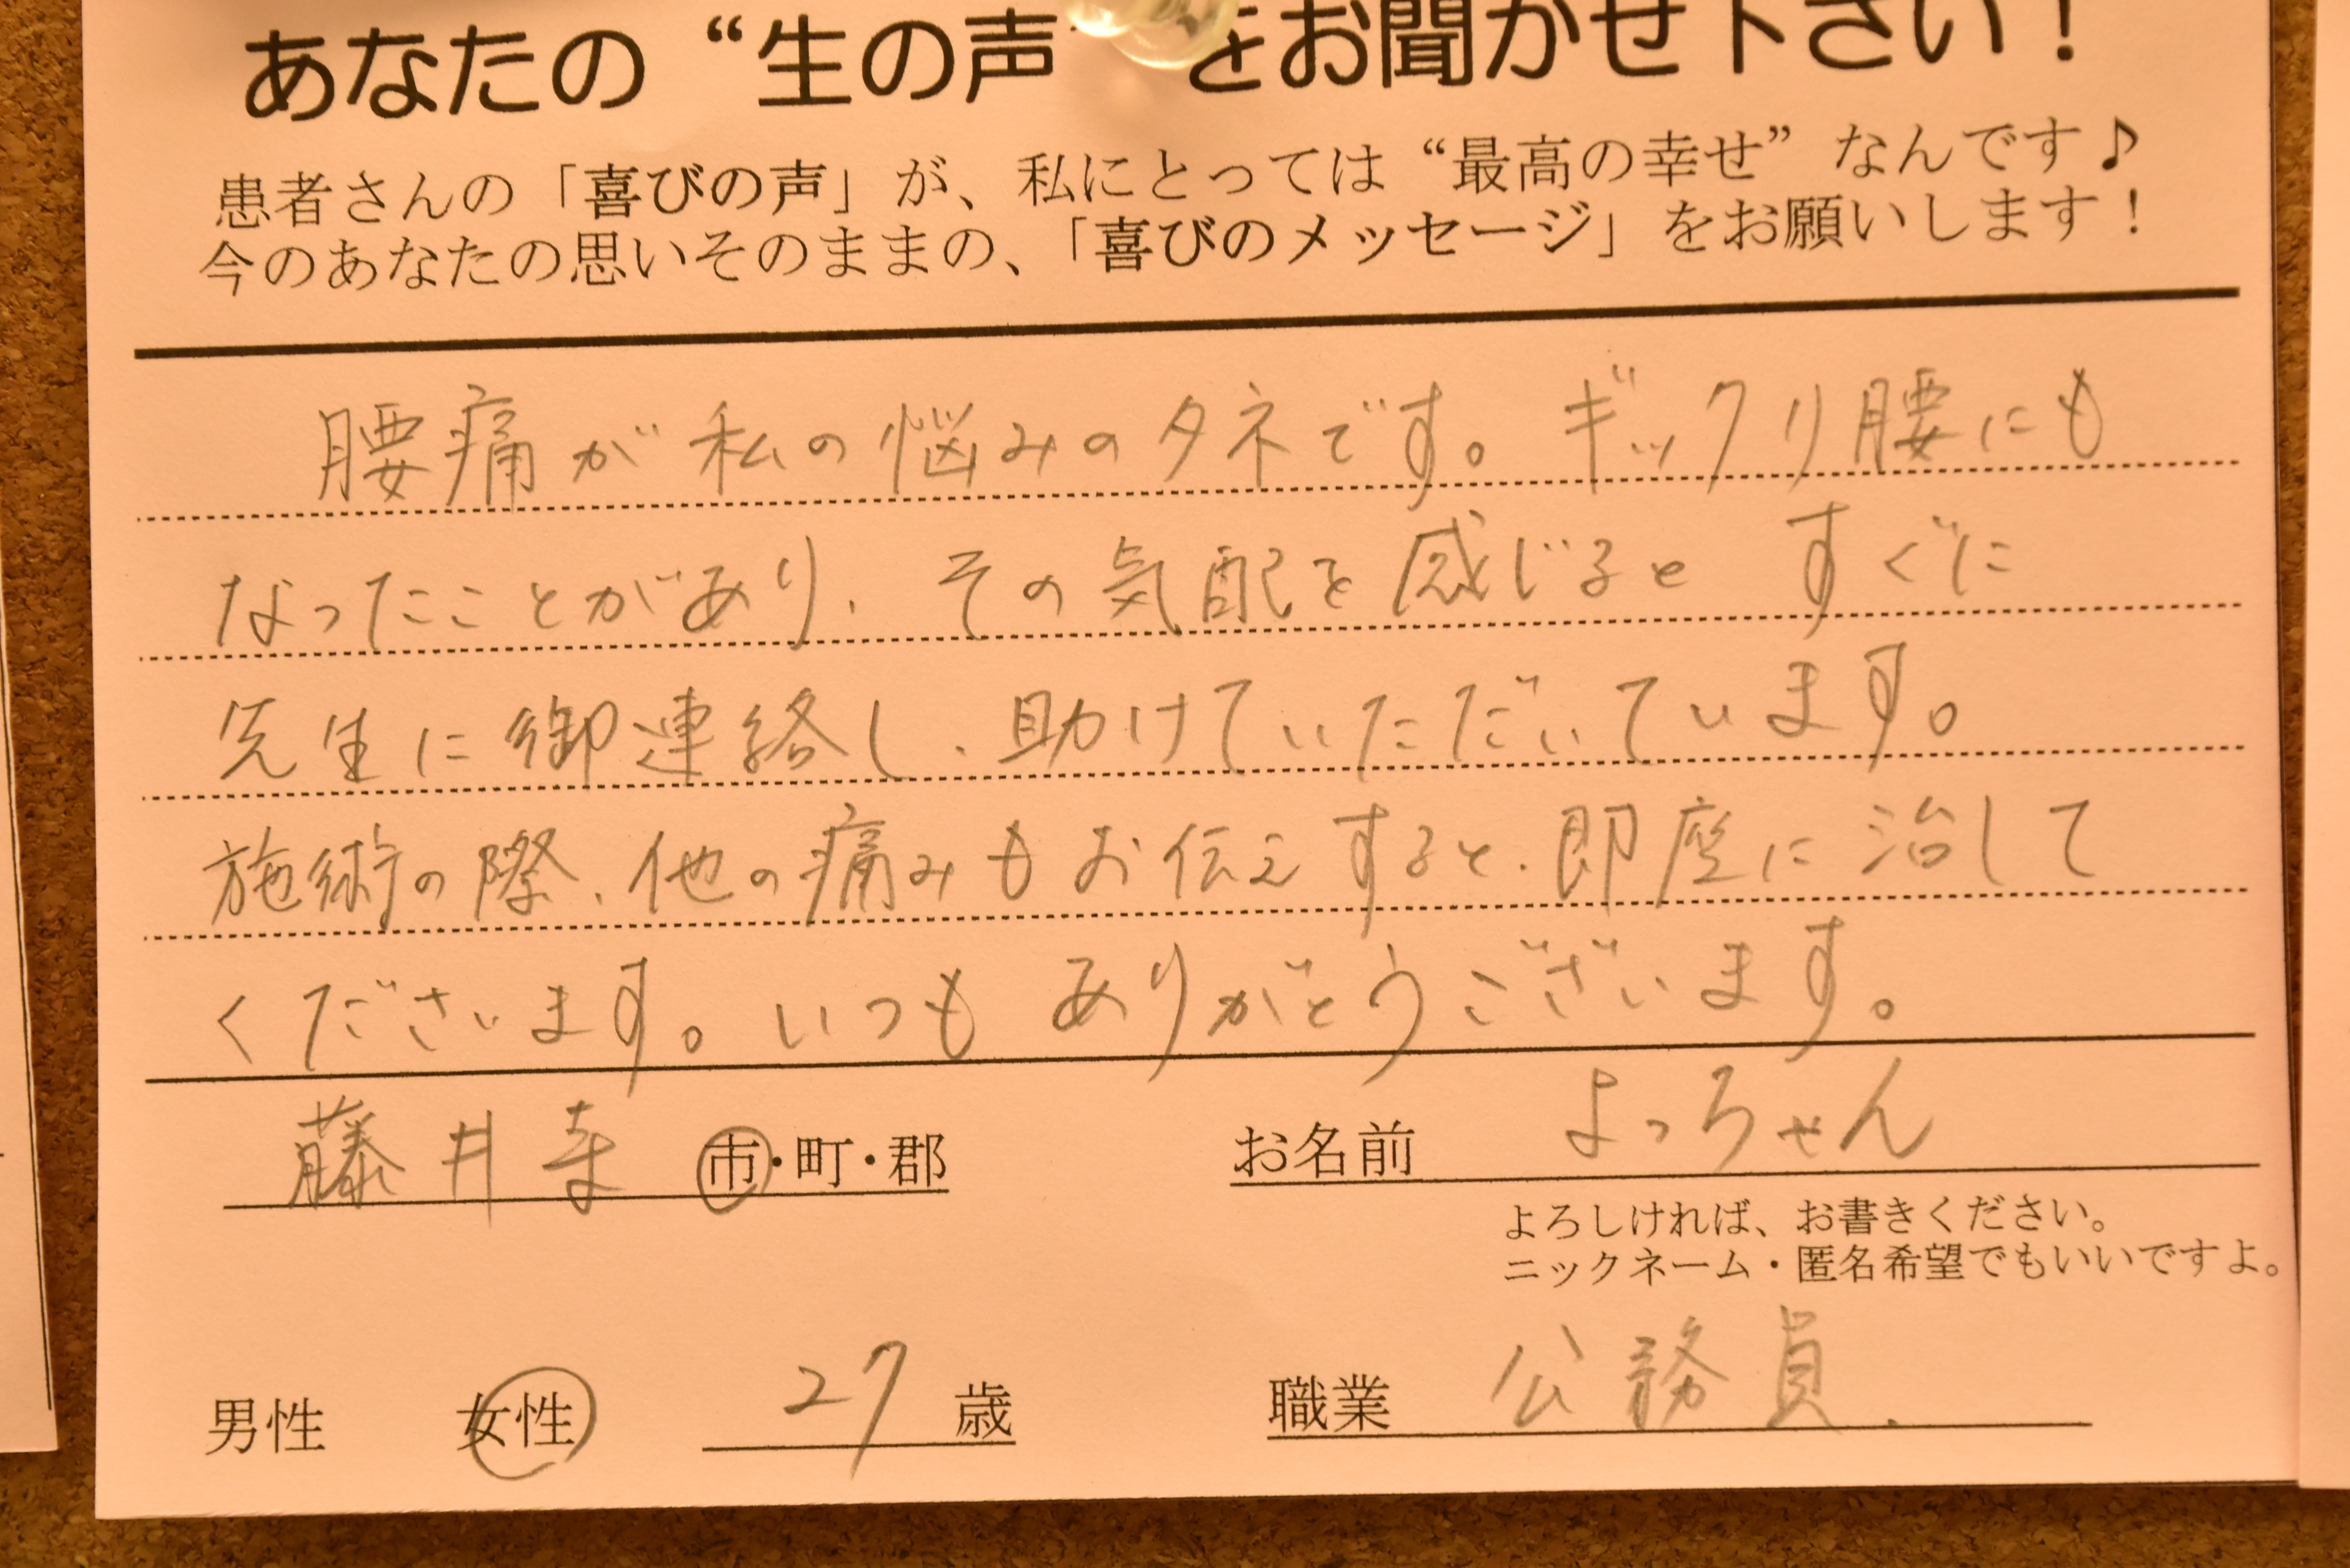 あなたの“生の声”をお聞かせ下さい！
患者さんの「喜びの声」が、私にとっては“最高の幸せ”なんです♪
今のあなたの思いそのままの、「喜びのメッセージ」をお願いします！
腰痛が私の悩みのタネです。ギックリ腰にも
なったことがあり、その気配を感じるとすぐに
先生に御連絡し、助けていただいています。
施術の際、他の痛みもお伝えすると、即座に治して
くださいます。いつもありがとうございます。
藤井寺 市・町・郡 お名前 よっちゃん
よろしければ、お書きください。
ニックネーム・匿名希望でもいいですよ。
男性 女性 27 歳 職業 公務員.